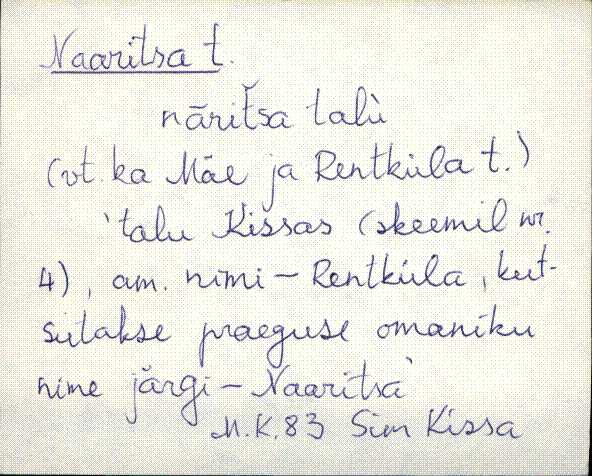 Naaritsa t.
nāriťsa talù
(vt. ka Mäe ja Rentküla t.)
'talu Kissas (skeemil nr.
4), am. nimi - Rentküla, kut-
sutakse praeguse omaniku
nime järgi - Naaritsa'
M.K. 83 Sim Kissa